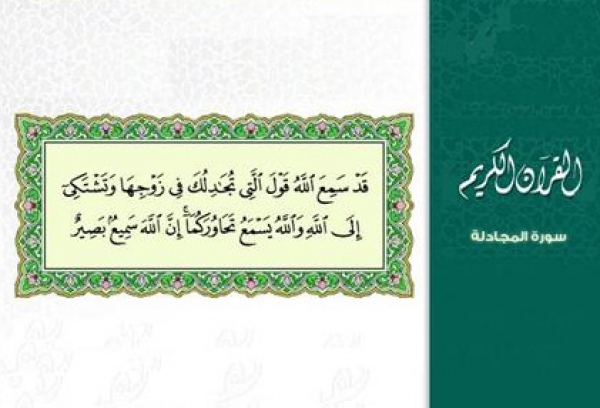 قَدْ سَمِعَ ٱللَّهُ قَوْلَ ٱلَّتِى تُجَـٰدِلُكَ فِى زَوْجِهَا وَتَشْتَكِىٓ
إِلَى ٱللَّهِ وَٱللَّهُ يَسْمَعُ تَحَاوُرَكُمَآ ۚ إِنَّ ٱللَّهَ سَمِيعٌۢ بَصِيرٌ
القرآن الكريم
سورة المجادلة